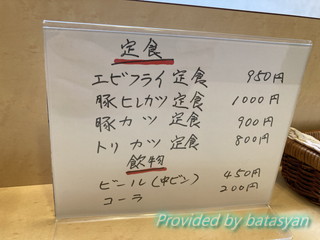 定食
エビフライ定食 950円
豚ヒレカツ定食 1000円
豚カツ定食 900円
トリカツ定食 800円
飲物
ビール(中ビン) 450円
コーラ 200円
Provided by batasyan